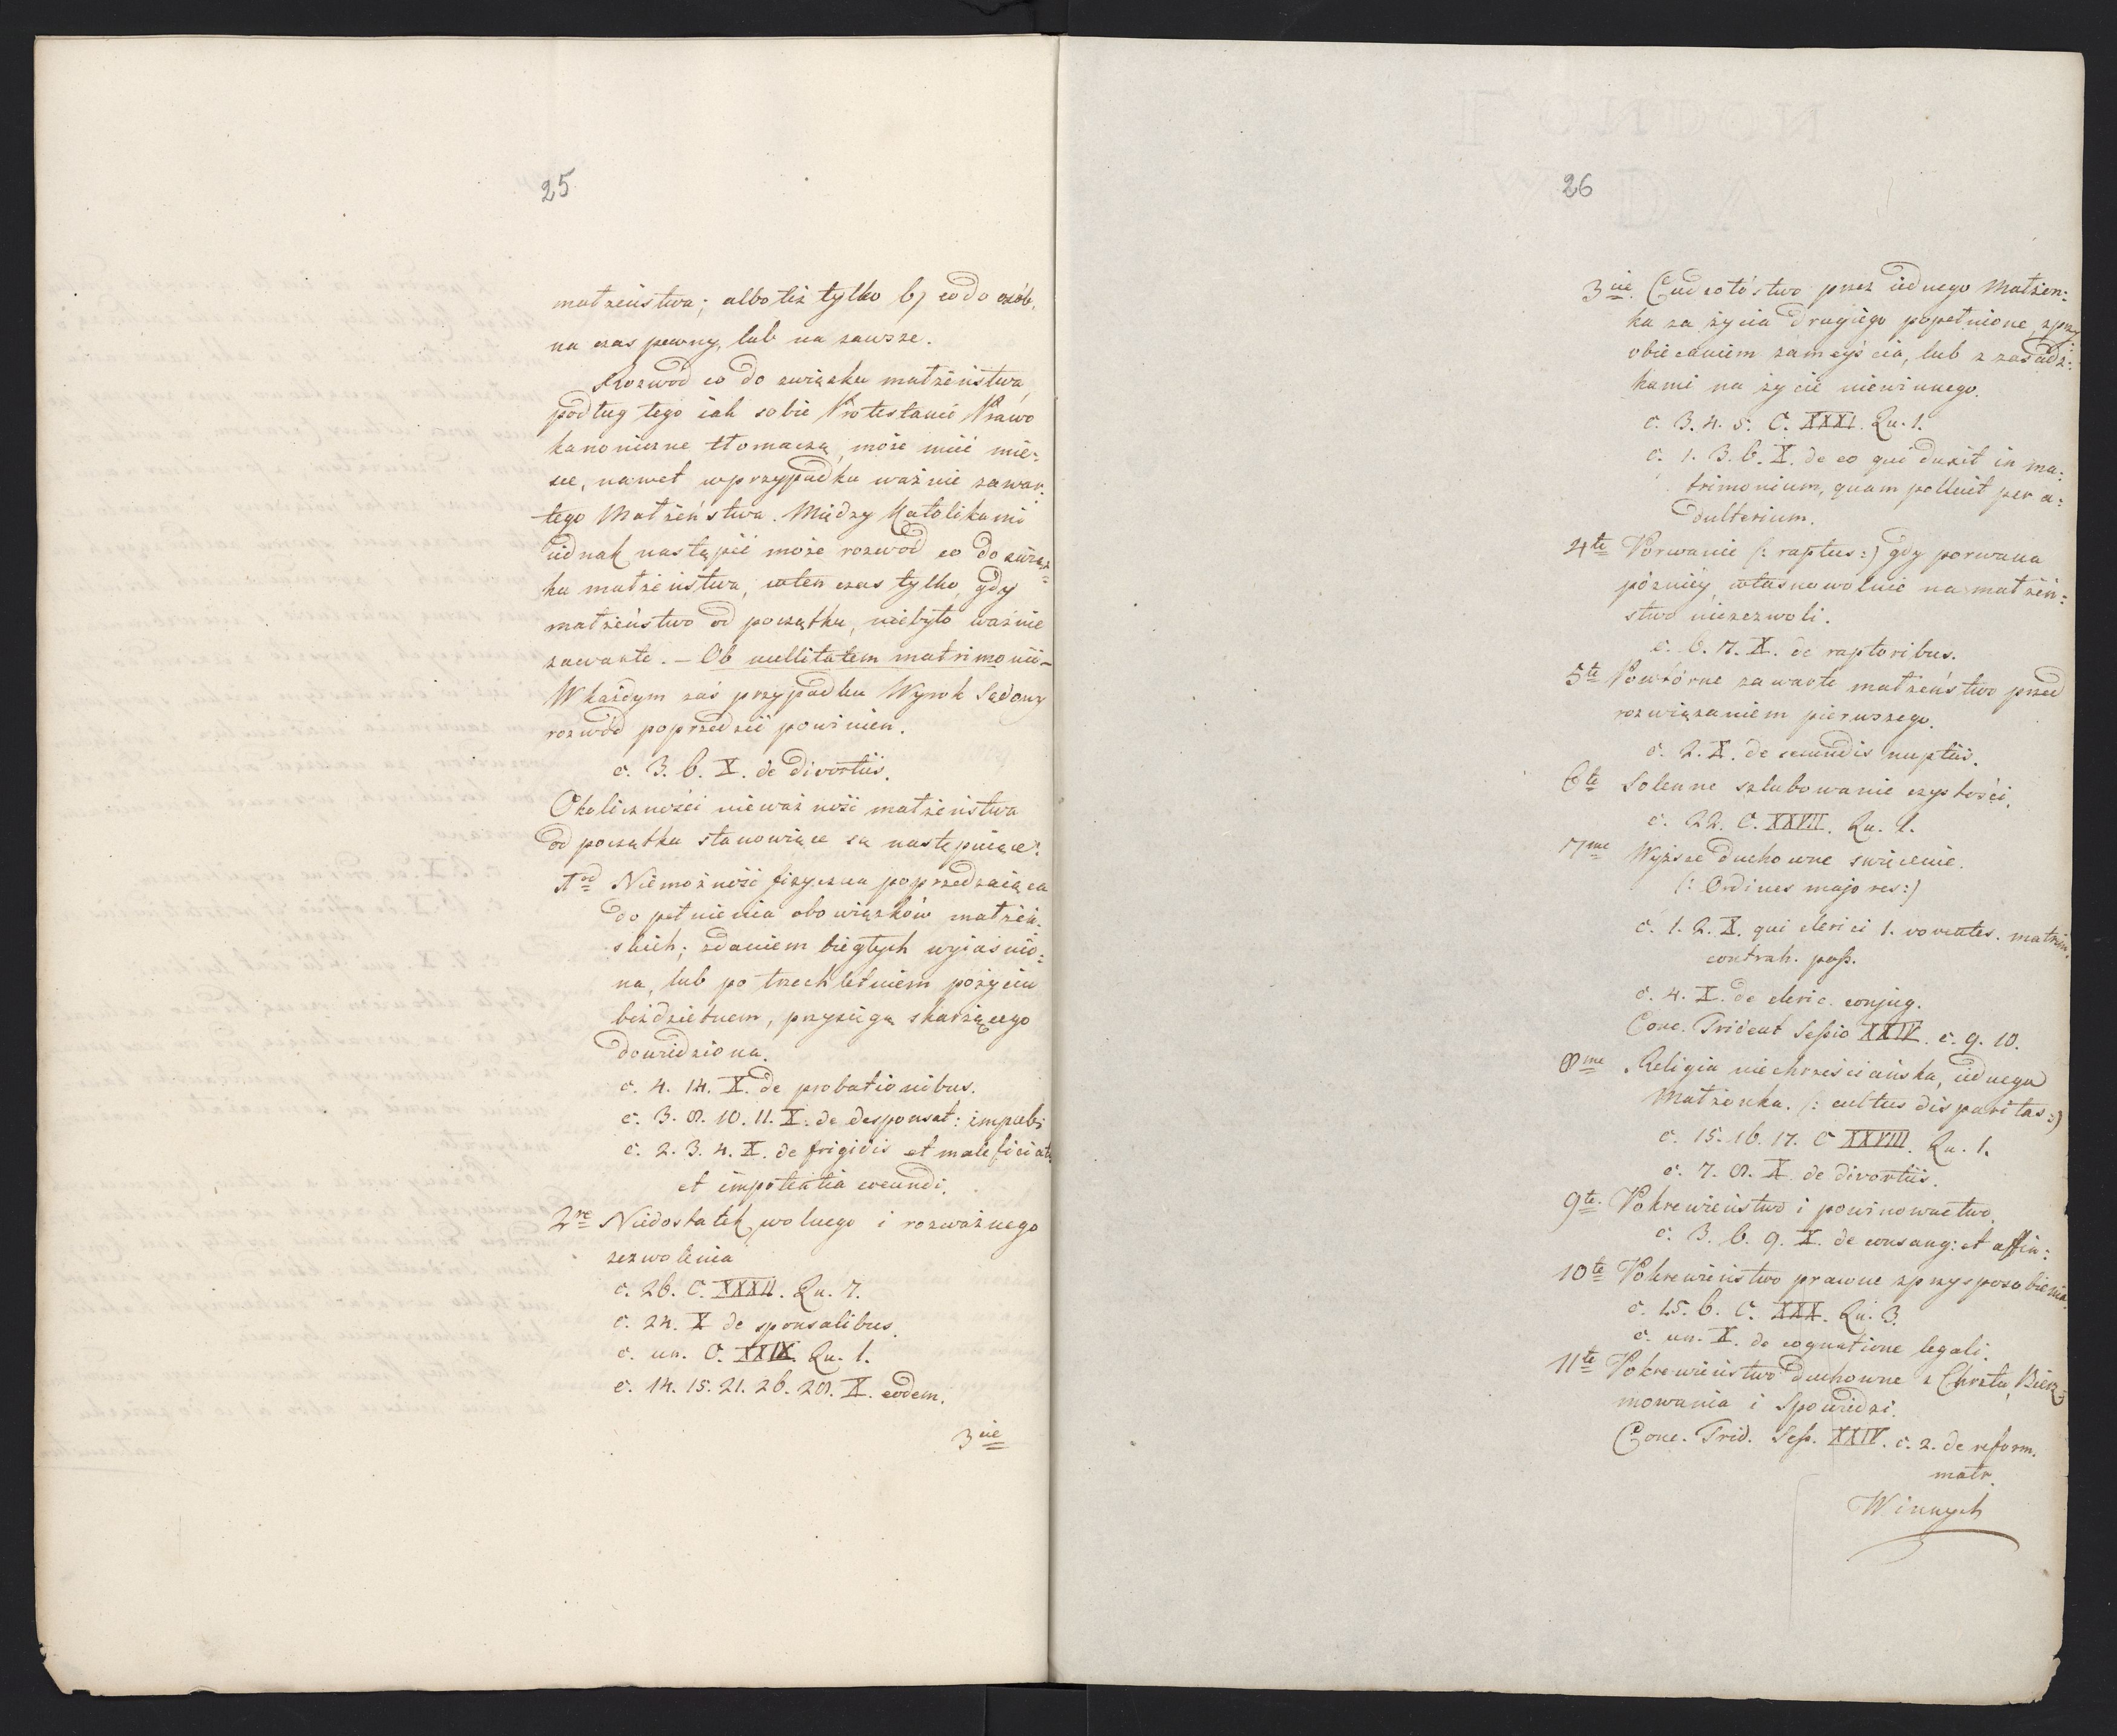 25
małżeństwa; albo też tylko b) co do osób,
na czas pewny, lub na zawsze.
Rozwód co do związku małżeństwa,
podług tego iak sobie Protestanci Prawo
kanoniczne tłomaczą, może mieć miey:
sce, nawet w przypadku ważnie zawar:
tego Małżeństwa. Między Katolikami
iednak nastąpić może rozwód co do związ:
ku małżeństwa, wten czas tylko, gdy
małżeństwo od początku, niebyło ważnie
zawarte. – Ob nullitatem matrimonii –
W każdym zaś przypadku Wyrok Sądowy
rozwód poprzedzić powinien.
c. 3. 6. X. de divortiis.
Okoliczności nieważność małżeństwa
od początku stanowiące są następuiące:
1od Niemożność fizyczna poprzedzaiąca
do pełnienia obowiązków małżeń:
skich; zdaniem biegłych wyiaśnio:
na, lub po trzechletniem pożyciu
bezdzietnem, przysięgą skarżącego
dowiedziona.
c. 4. 14. X. de probationibus.
c. 3. 8. 10. 11. X. de desponsat: impub:
c. 2. 3. 4. X. de frigidis et maleficiat:
et impotentia coeundi.
2re Niedostatek wolnego i rozważnego
zezwolenia
c. 26. C. XXXII. Qu. 7.
c. 24. X de sponsalibus.
c. un. C. XXIX. Qu. 1.
c. 14. 15. 21. 26. 28. X. eodem.
3cie
26
3cie Cudzołóstwo przez iednego Małżon:
ka za życia drugiego popełnione, z przy:
obiecaniem zamęyścia, lub z zasadz:
kami na życie niewinnego.
c. 3. 4. 5. C. XXXI. Qu. 1.
c. 1. 3. 6. X. de eo qui duxit in ma:
trimonium, quam polluit per a:
dulterium.
4te Porwanie (: raptus :) gdy porwana
późniey, własnowolnie na małżeń:
stwo niezezwoli.
c. 6. 7. X. de raptoribus.
5te Powtórne zawarte małżeństwo przed
rozwiązaniem pierwszego.
c. 2. X. de secundis nuptiis.
6te Solenne szlubowanie czystości.
c. 22. C. XXVII. Qu. 1.
7me Wyższe duchowne święcenie.
(: Ordines majores :)
c. 1. 2. X. qui clerici l. voventes. matrim.
contrah. poss.
c. 4. X. de cleric. conjug.
Conc. Trident Sessio XXIV. c. 9. 10.
8me Religia niechrześciańska, iednego
Małżonka. (: cultus disparitas :)
c. 15. 16. 17. C XXVIII. Qu. 1.
c. 7. 8. X. de divortiis.
9te Pokrewieństwo i powinowactwo
c. 3. 6. 9. X. de consang: et affin:
10te Pokrewieństwo prawne z przysposobienia.
c. 1. 5. 6. C. XXX. Qu. 3.
c. un. X. de cognatione legali.
11te Pokrewieństwo duchowne z Chrztu, Bierz:
mowania i Spowiedzi.
Conc. Trid. Sess. XXIV. c. 2. de reform.
matr.
W innych